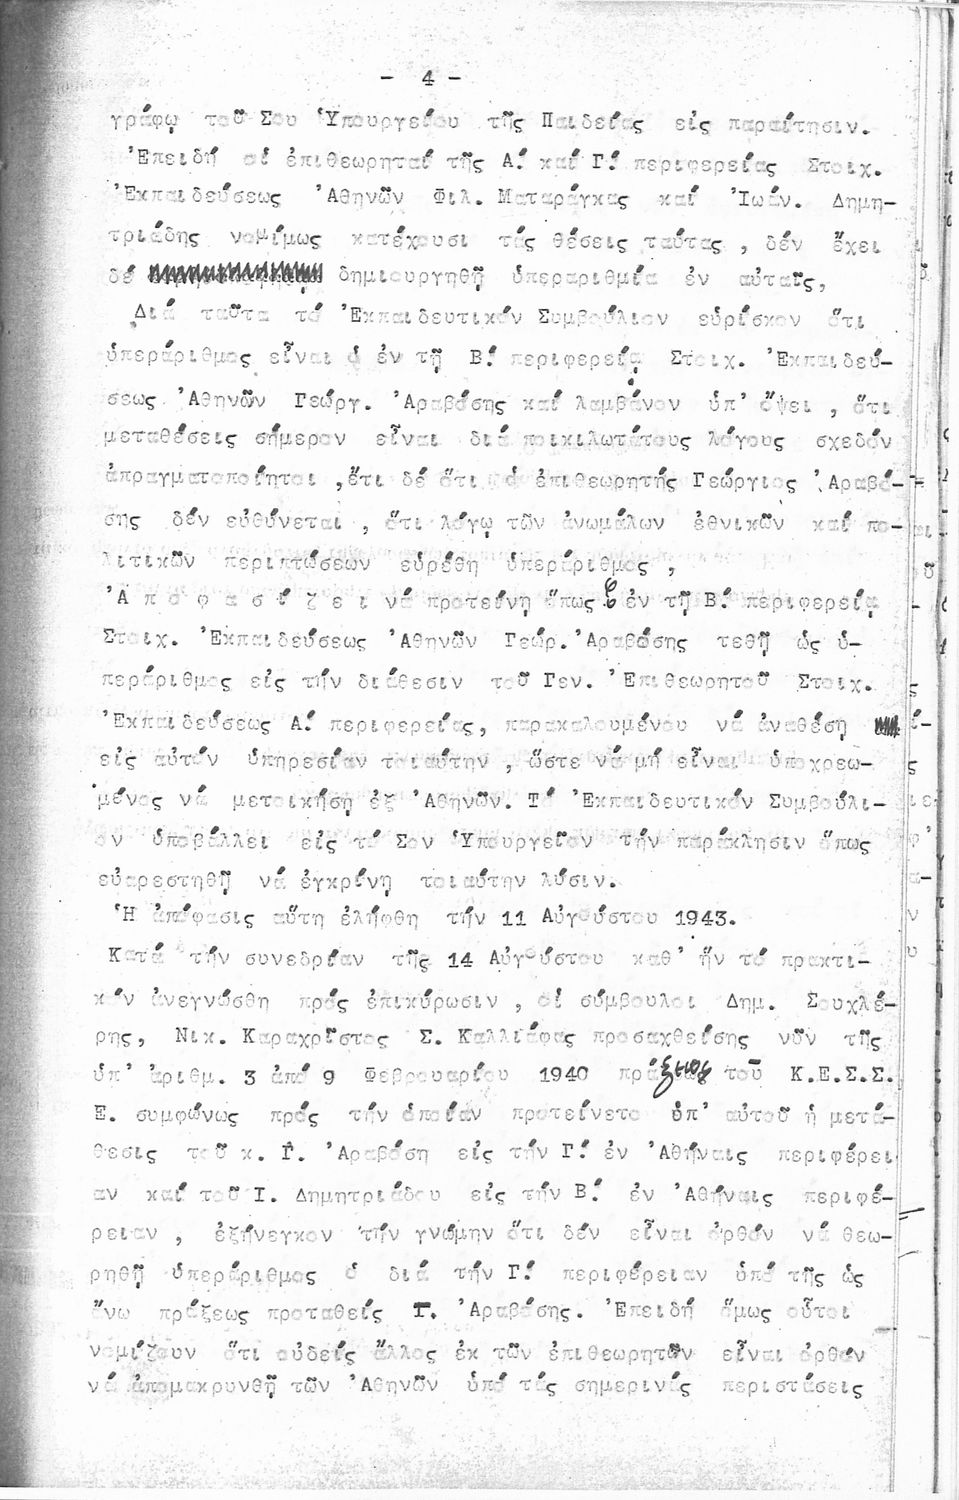 - 4 -
γράφῳ τοῦ Σου Ὑπουργείου τῆς Παιδείας εἰς παραίτησιν.
Ἐπειδή οἱ ἐπιθεωρηταί τῆς Α.' καί Γ.' περιφερείας Στοιχ.
Ἐκπαιδεύσεως Ἀθηνῶν Φιλ. Ματαράγκας καί Ἰωάν. Δημη-
τριάδης νομίμως κατέχουσι τάς θέσεις ταύτας , δέν ἔχει
δέ δημιουργηθῆ ὑπεραριθμία ἐν αὐταῖς,
Διά ταῦτα τό Ἐκπαιδευτικόν Συμβούλιον εὑρίσκον ὅτι
ὑπεράριθμος εἶναι ὁ ἐν τῇ Β.' περιφερείᾳ Στοιχ. Ἐκπαιδεύ-
σεως Ἀθηνῶν Γεώργ. Ἀραβόσης καί λαμβάνον ὑπ' ὄψει , ὅτι
μεταθέσεις σήμερον εἶναι διά ποικιλωτάτους λόγους σχεδόν
ἀπραγματοποίητοι ,ἔτι δέ ὅτι ὁ ἐπιθεωρητής Γεώργιος Ἀραβό-
σης δέν εὐθύνεται , ὅτι λόγῳ τῶν ἀνωμάλων ἐθνικῶν καί πο-
λιτικῶν περιπτώσεων εὑρέθη ὑπεράριθμος ,
Ἀ π ο φ α σ ί ζ ε ι νά προτείνῃ ὅπως ὁ ἐν τῇ Β.' περιφερείᾳ
Στοιχ. Ἐκπαιδεύσεως Ἀθηνῶν Γεώρ. Ἀραβόσης τεθῇ ὡς ὑ-
περάριθμος εἰς τήν διάθεσιν τοῦ Γεν. Ἐπιθεωρητοῦ Στοιχ.
Ἐκπαιδεύσεως Α.' περιφερείας, παρακαλουμένου νά ἀναθέσῃ
εἰς αὐτόν ὑπηρεσίαν τοιαύτην , ὥστε νά μή εἶναι ὑποχρεω-
μένος νά μετοικήσῃ ἐξ Ἀθηνῶν. Τό Ἐκπαιδευτικόν Συμβούλι-
ον ὑποβάλλει εἰς τό Σον Ὑπουργεῖον τήν παράκλησιν ὅπως
εὐαρεστηθῇ νά ἐγκρίνῃ τοιαύτην λύσιν.
Ἡ ἀπόφασις αὕτη ἐλήφθη τήν 11 Αὐγούστου 1943.
Κατά τήν συνεδρίαν τῆς 14 Αὐγούστου καθ' ἥν τό πρακτι-
κόν ἀνεγνώσθη πρός ἐπικύρωσιν , οἱ σύμβουλοι Δημ. Σουχλέ-
ρης, Νικ. Καραχρῖστος Σ. Καλλιάφας προσαχθείσης νῦν τῆς
ὑπ' ἀριθμ. 3 ἀπό 9 Φεβρουαρίου 1940 πράξεως τοῦ Κ.Ε.Σ.Σ.
Ε. συμφώνως πρός τήν ὁποίαν προτείνετο ὑπ' αὐτοῦ ἡ μετά-
θεσις τοῦ κ. Γ. Ἀραβόση εἰς τήν Γ.' ἐν Ἀθήναις περιφέρει
αν καί τοῦ Ι. Δημητριάδου εἰς τήν Β.' ἐν Ἀθήναις περιφέ-
ρειαν , ἐξήνεγκον τήν γνώμην ὅτι δέν εἶναι ὀρθόν νά θεω-
ρηθῇ ὑπεράριθμος ὁ διά τήν Γ.' περιφέρειαν ὑπό τῆς ὡς
ἄνω πράξεως προταθείς Γ. Ἀραβόσης. Ἐπειδή ὅμως οὗτοι
νομίζουν ὅτι οὐδείς ἄλλος ἐκ τῶν ἐπιθεωρητῶν εἶναι ὀρθόν
νά ἀπομακρυνθῇ τῶν Ἀθηνῶν ὑπό τάς σημερινάς περιστάσεις